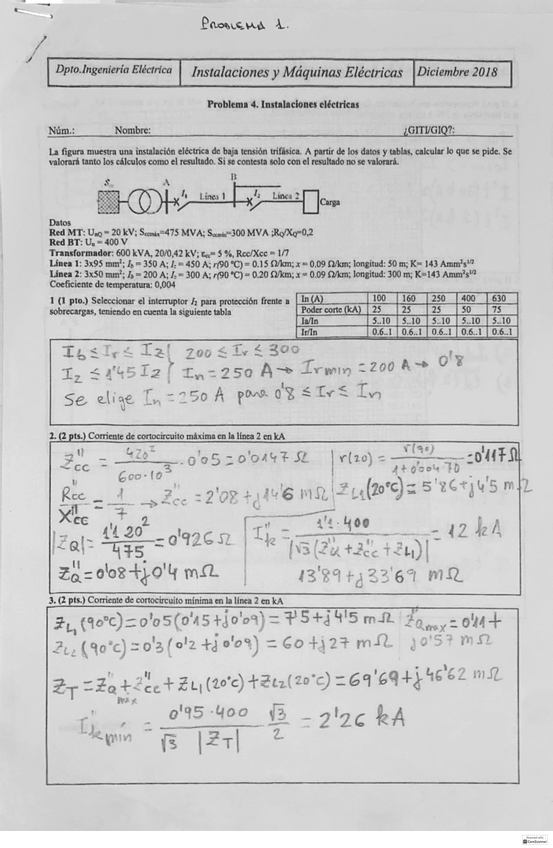 PROBLEMA 1.
Dpto.Ingeniería Eléctrica Instalaciones y Máquinas Eléctricas Diciembre 2018
Problema 4. Instalaciones eléctricas
Núm.: Nombre: ¿GITI/GIQ?:
La figura muestra una instalación eléctrica de baja tensión trifásica. A partir de los datos y tablas, calcular lo que se pide. Se
valorará tanto los cálculos como el resultado. Si se contesta solo con el resultado no se valorará.
A B
I₁ Línea 1 I₂ Línea 2 Carga
Datos
Red MT: UnQ = 20 kV; Sccmáx=475 MVA; Sccmín=300 MVA ;RQ/XQ=0,2
Red BT: Un = 400 V
Transformador: 600 kVA, 20/0,42 kV; εcc= 5 %, Rcc/Xcc = 1/7
Línea 1: 3x95 mm²; Ib = 350 A; Iz = 450 A; r(90 ºC) = 0.15 Ω/km; x = 0.09 Ω/km; longitud: 50 m; K= 143 Amm²s¹/²
Línea 2: 3x50 mm²; Ib = 200 A; Iz = 300 A; r(90 ºC) = 0.20 Ω/km; x = 0.09 Ω/km; longitud: 300 m; K=143 Amm²s¹/²
Coeficiente de temperatura: 0,004
1 (1 pto.) Seleccionar el interruptor I₂ para protección frente a
sobrecargas, teniendo en cuenta la siguiente tabla
In (A) 100 160 250 400 630
Poder corte (kA) 25 25 25 50 75
Ia/In 5..10 5..10 5..10 5..10 5..10
Ir/In 0.6..1 0.6..1 0.6..1 0.6..1 0.6..1
Ib ≤ Ir ≤ Iz 200 ≤ Ir ≤ 300
I2 ≤ 1'45 Iz In = 250 A → Irmin = 200 A → 0'8
Se elige In = 250 A para 0'8 ≤ Ir ≤ In
2. (2 pts.) Corriente de cortocircuito máxima en la línea 2 en kA
Z''cc = 420²/600·10³ · 0'05 = 0'0147 Ω r(20) = r(90)/1+0'004·70 = 0'117 Ω
Rcc''/Xcc'' = 1/7 → Z''cc = 2'08 + j14'6 mΩ ZL1(20ºC) = 5'86 + j4'5 mΩ
|ZQ| = 1'1·20²/475 = 0'926 Ω I''k = 1'1·400/|√3(Z''Q + Z''cc + ZL1)| = 12 kA
Z''Q = 0'08 + j0'4 mΩ 13'89 + j33'69 mΩ
3. (2 pts.) Corriente de cortocircuito mínima en la línea 2 en kA
ZL1(90ºC) = 0'05(0'15 + j0'09) = 7'5 + j4'5 mΩ Z''Qmax = 0'11 +
ZL2(90ºC) = 0'3(0'2 + j0'09) = 60 + j27 mΩ j0'57 mΩ
ZT = Z''Qmax + Z''cc + ZL1(20ºC) + ZL2(20ºC) = 69'69 + j46'62 mΩ
I''kmín = 0'95·400/√3 |ZT| √3/2 = 2'26 kA
CamScanner